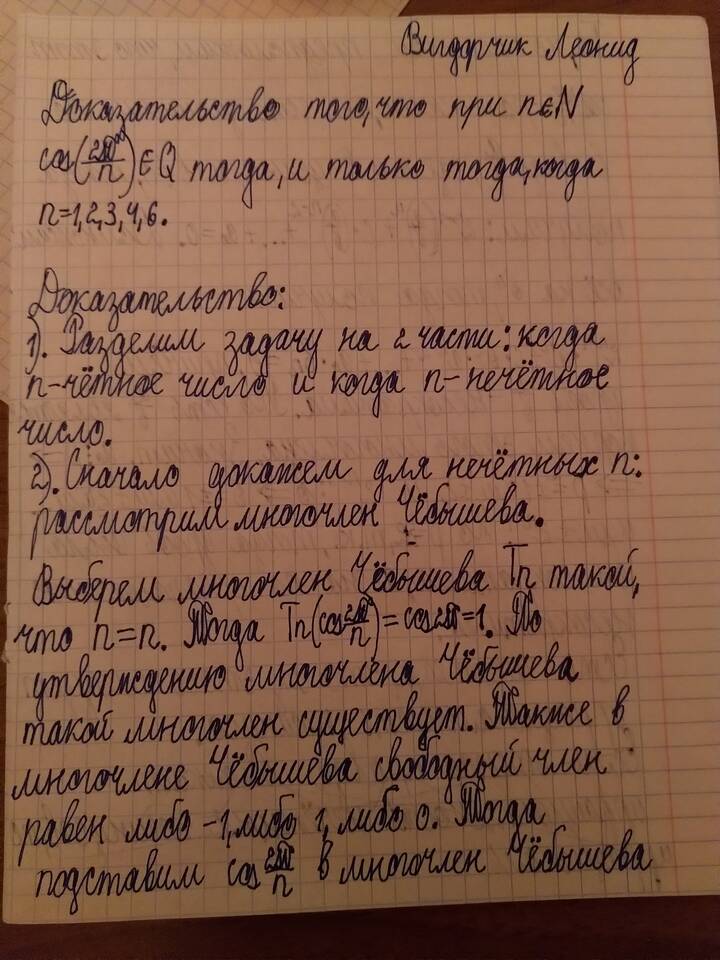 Вигдорчик Леонид
Доказательство того, что при n∈N
cos(2π/n)∈Q тогда, и только тогда, когда
n=1,2,3,4,6.
Доказательство:
1). Разделим задачу на 2 части: когда
n-чётное число и когда n-нечётное
число.
2). Сначало докажем для нечётных n:
рассмотрим многочлен Чёбышева.
Выберем многочлен Чёбышева Tn такой,
что n=n. Тогда Tn(cos 2π/n)=cos2π=1. По
утверждению многочлена Чёбышева
такой многочлен существует. Также в
многочлене Чёбышева свободный член
равен либо -1, либо 1, либо 0. Тогда
подставим cos 2π/n в многочлен Чёбышева